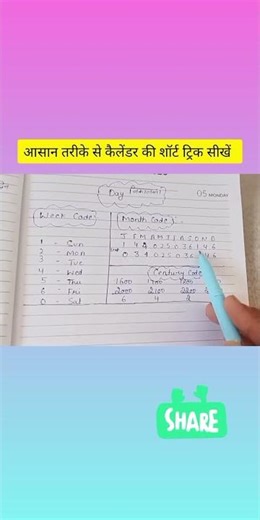 आसान तरीके से कैलेंडर की शॉर्ट ट्रिक सीखें
05 MONDAY
Week Codes
Month Codes
J F M A M J J A S O N D
1 4 4 0 2 5 0 3 6 1 4 6
0 3 4 0 2 5 0 3 6 1 4 6
1 - Sun
2 - Mon
3 - Tue
4 - Wed
5 - Thu
6 - Fri
0 - Sat
Century Code
1600 1700 1800
2000 2100 2200
6 4 2
SHARE